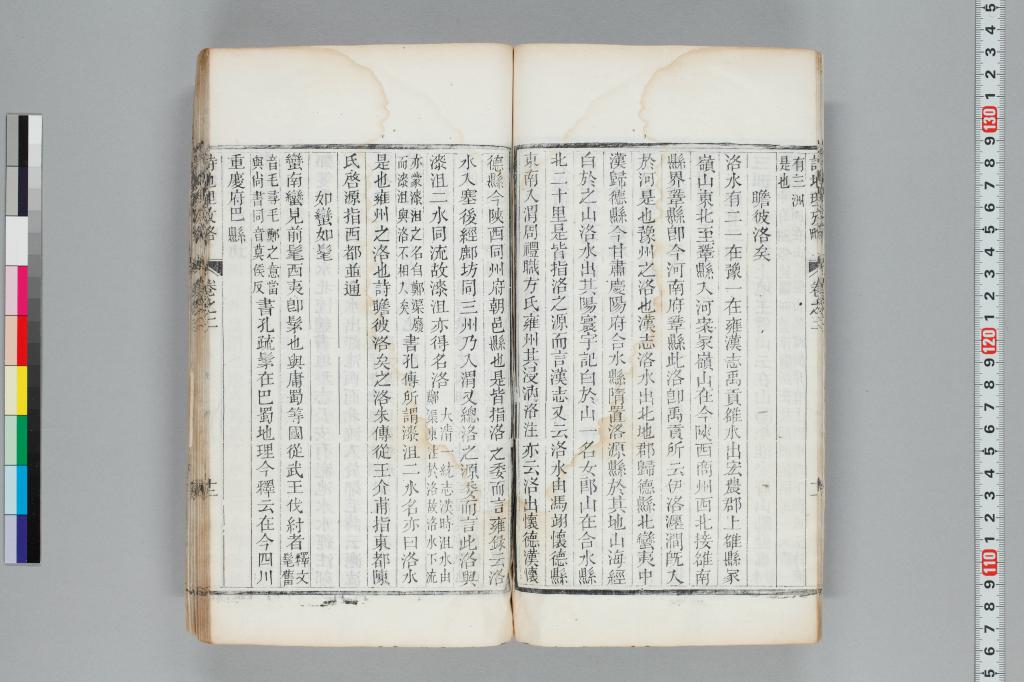 有三洲
是也
瞻彼洛矣
洛水有二一在豫一在雍漢志禹貢雒水出宏農郡上雒縣冢
嶺山東北至鞏縣入河案冢嶺山在今陝西商州西北接雒南
縣界鞏縣卽今河南府鞏縣此洛卽禹貢所云伊洛瀍澗旣入
於河是也豫州之洛也漢志洛水出北地郡歸德縣北蠻夷中
漢歸德縣今甘肅慶陽府合水縣隋置洛源縣於其地山海經
白於之山洛水出其陽寰宇記白於山一名女郎山在合水縣
北二十里是皆指洛之源而言漢志又云洛水由馮翊懷德縣
東南入渭周禮職方氏雍州其浸渭洛注亦云洛出懷德漢懷
德縣今陝西同州府朝邑縣也是皆指洛之委而言雍錄云洛
水入塞後經鄜坊同三州乃入渭又總洛之源委而言此洛與
漆沮二水同流故漆沮亦得名洛
大清一統志漢時沮水由
鄭渠東注於洛故洛水下流
亦蒙漆沮之名自鄭渠廢
而漆沮與洛不相入矣
書孔傳所謂漆沮二水名亦曰洛水
是也雍州之洛也詩瞻彼洛矣之洛朱傳從王介甫指東都陳
氏啓源指西都並通
如蠻如髦
蠻南蠻見前髦西夷卽髳也與庸蜀等國從武王伐紂者
釋文
髦舊
音毛尋毛鄭之意當
與尚書同音莫侯反
書孔疏髳在巴蜀地理今釋云在今四川
重慶府巴縣
詩地理攷略
卷之二
十二